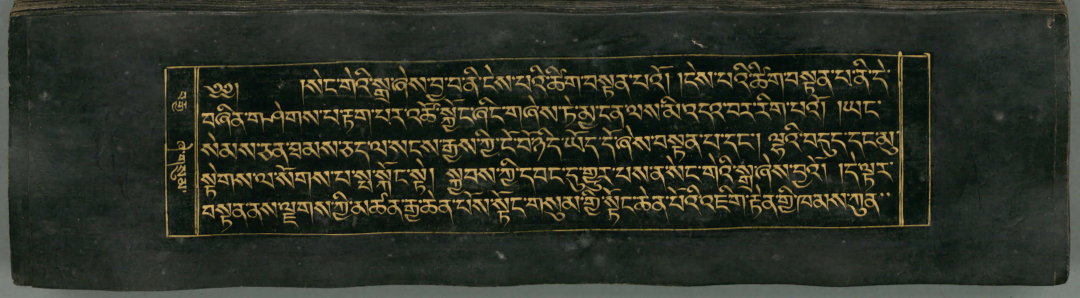 ༄༅། །སེང་གེའི་སྒྲ་ཞེས་བྱ་བ་ནི་ངེས་པའི་ཚིག་བསྟན་པའོ། །ངེས་པའི་ཚིག་བསྟན་པ་ནི་དེ་
བཞིན་གཤེགས་པ་རྟག་པར་འཚོ་སྐྱོང་ཞིང་གཞེས་ཏེ་མྱ་ངན་ལས་མི་འདའ་བར་རིག་པའོ། །ཡང་
སེམས་ཅན་ཐམས་ཅད་ལ་སངས་རྒྱས་ཀྱི་ངོ་བོ་ཉིད་ཡོད་དོ་ཞེས་བསྟན་པ་དང་། ལྷའི་བདུད་དང་མུ་
སྟེགས་ལ་སོགས་པ་སྤ་སྐོང་སྟེ། སྐྱབས་ཀྱི་དབང་དུ་གྱུར་པས་ན་སེང་གེའི་སྒྲ་ཞེས་བྱའོ། །དེ་ལྟར་
བསྟན་ནས་ལྗགས་ཀྱི་མཚན་རྒྱ་ཆེན་པོས་སྟོང་གསུམ་གྱི་སྟོང་ཆེན་པོའི་འཇིག་རྟེན་གྱི་ཁམས་ཀུན་